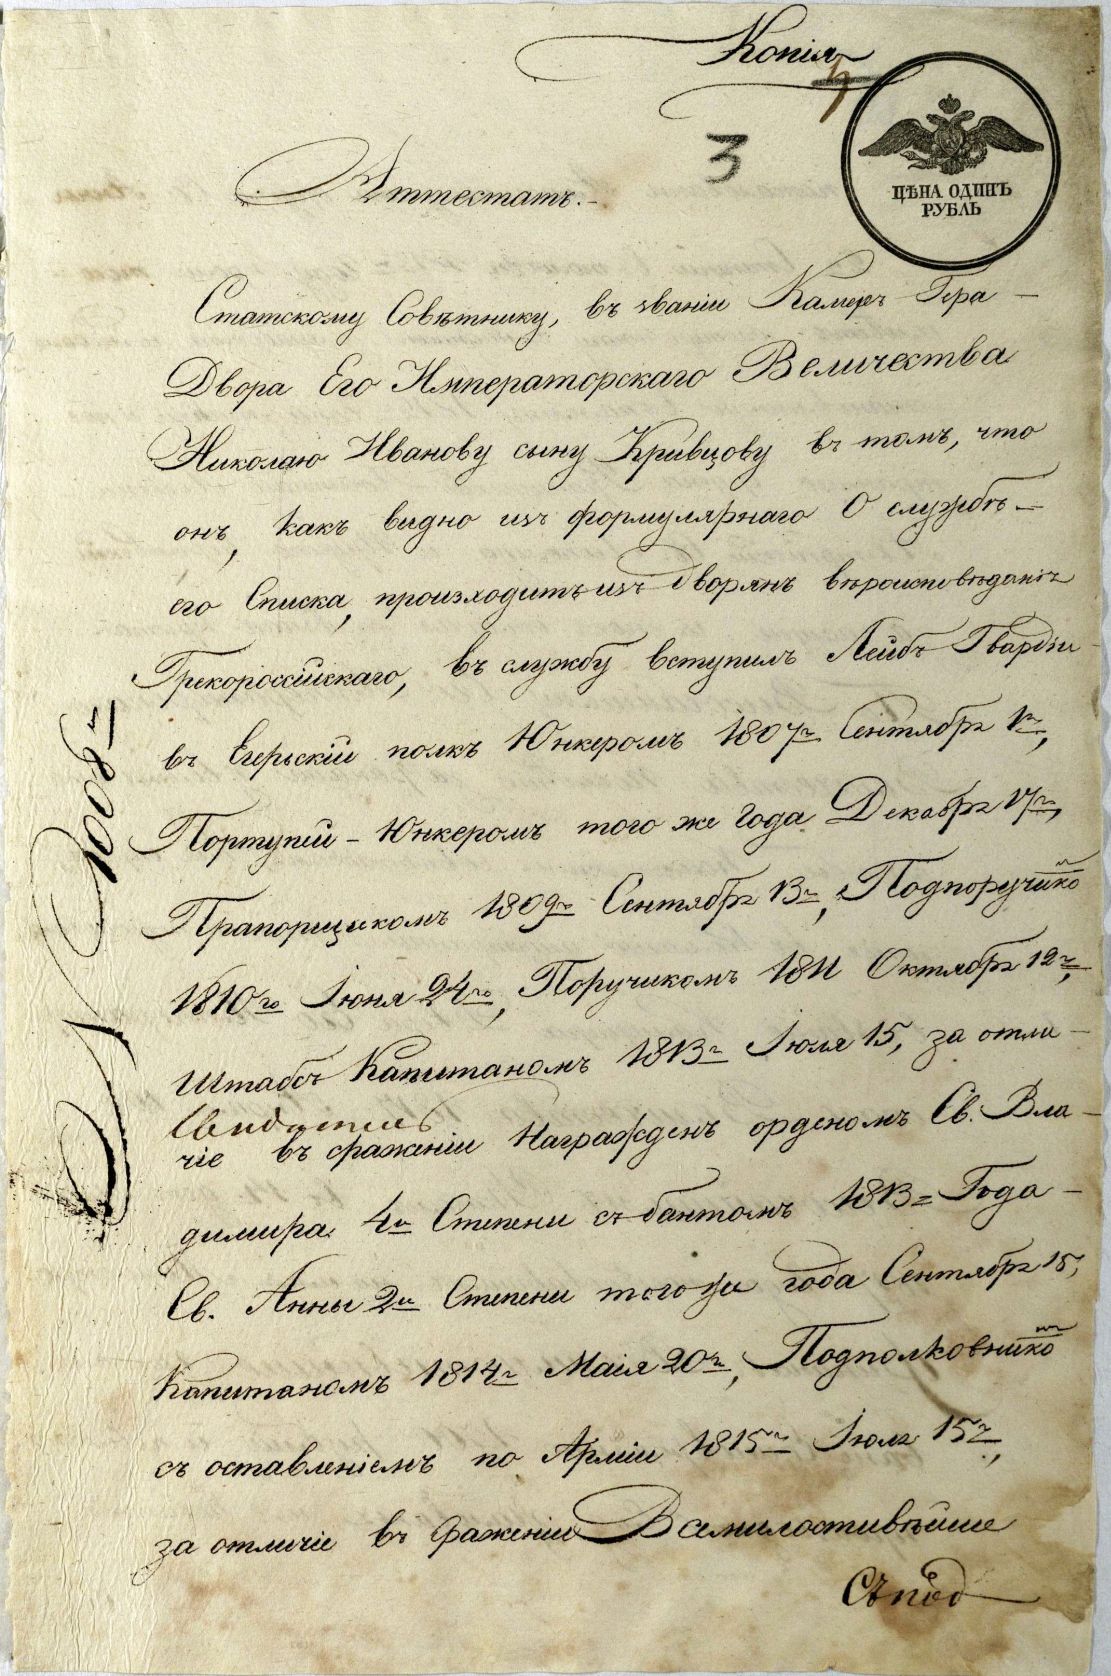 Копія
3
ЦѢНА ОДИНЪ
РУБЛЬ
Аттестатъ.-
Статскому Совѣтнику, въ званіи Камеръ Гера-
Двора Его Императорскаго Величества
Николаю Иванову сыну Кривцову въ томъ, что
онъ, какъ видно изъ формулярнаго О службѣ-
его Списка, происходитъ изъ дворянъ вѣроисповѣданія
Грекороссійскаго, въ службу вступилъ Лейбъ Гвардіи-
въ Егерьскій полкъ Юнкеромъ 1807г Сентября 1го,
Портупей-Юнкеромъ того же года Декабря 17го,
Прапорщикомъ 1809го Сентября 13г, Подпоручико м
1810го Іюня 24го, Поручикомъ 1811 Октября 12г,
Штабсъ Капитаномъ 1813г Іюля 15, за отли-
чіе въ сраженіи награжденъ орденомъ Св. Вла-
димира 4й Степени съ бантомъ 1813= Года-
Св. Анны 2й Степени того же года Сентября 15,
Капитаномъ 1814г Маія 20г, Подполковнико мъ
съ оставленіемъ по Арміи 1815го Іюля 15г,
за отличіе въ сраженіи Всемилостивѣйше
№ 1008й